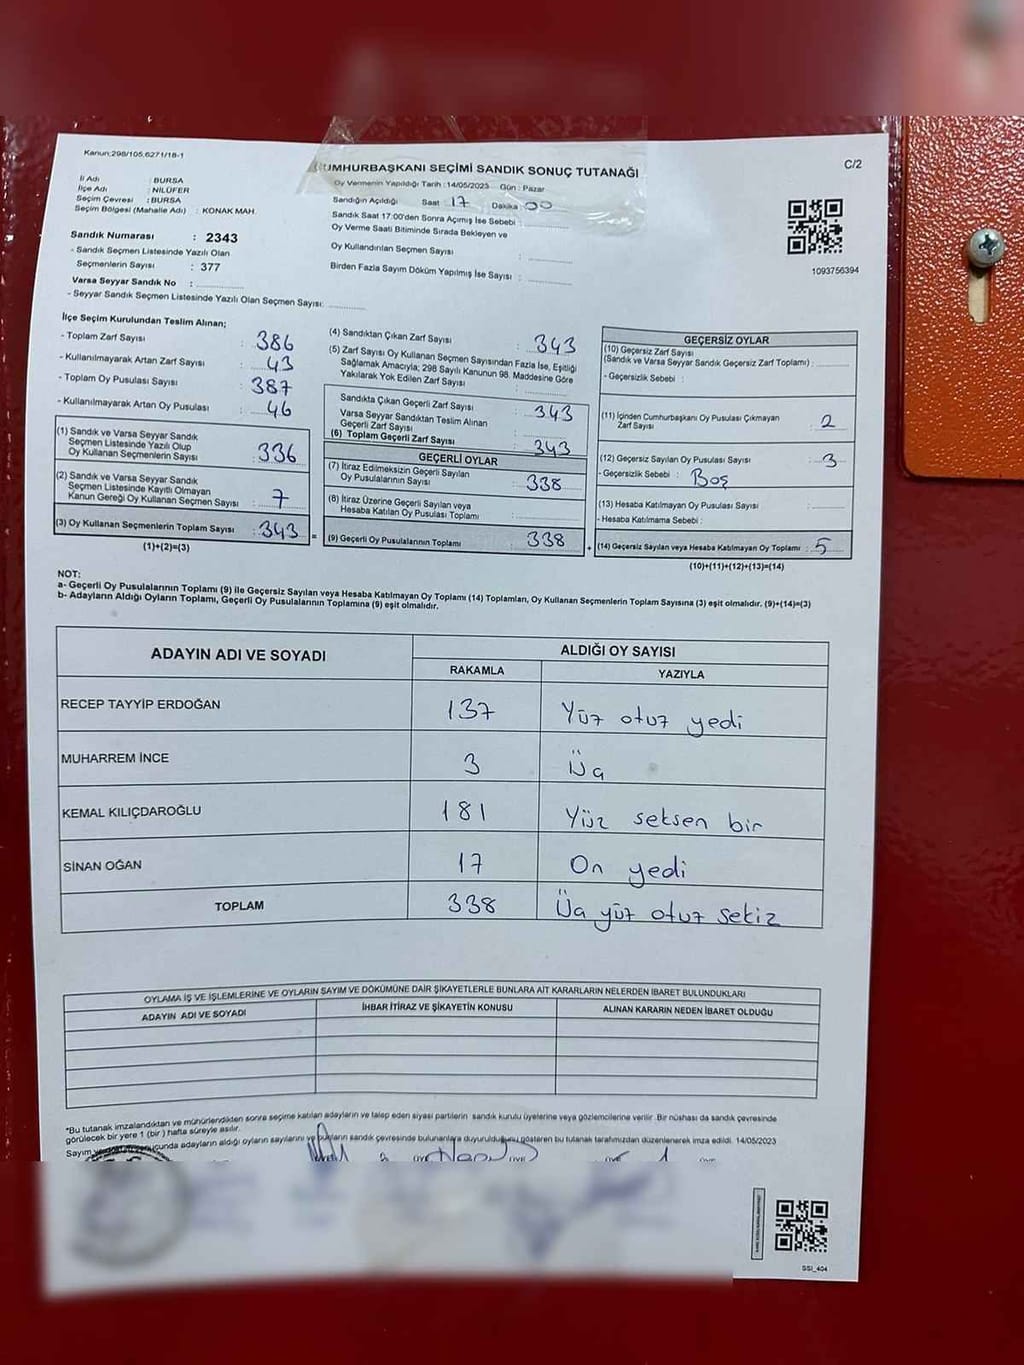 Kanun:298/105,6271/18-1
C/2
CUMHURBAŞKANI SEÇİMİ SANDIK SONUÇ TUTANAĞI
İl Adı : BURSA
İlçe Adı : NİLÜFER
Seçim Çevresi : BURSA
Seçim Bölgesi (Mahalle Adı) : KONAK MAH.
Sandık Numarası : 2343
- Sandık Seçmen Listesinde Yazılı Olan
Seçmenlerin Sayısı : 377
Varsa Seyyar Sandık No :
- Seyyar Sandık Seçmen Listesinde Yazılı Olan Seçmen Sayısı:
Oy Vermenin Yapıldığı Tarih : 14/05/2023 Gün : Pazar
Sandığın Açıldığı Saat 17 Dakika 00
Sandık Saat 17:00'den Sonra Açımış İse Sebebi :
Oy Verme Saati Bitiminde Sırada Bekleyen ve
Oy Kullandırılan Seçmen Sayısı :
Birden Fazla Sayım Döküm Yapılmış İse Sayısı :
1093756394
İlçe Seçim Kurulundan Teslim Alınan;
- Toplam Zarf Sayısı : 386
- Kullanılmayarak Artan Zarf Sayısı : 43
- Toplam Oy Pusulası Sayısı : 387
- Kullanılmayarak Artan Oy Pusulası : 46
(1) Sandık ve Varsa Seyyar Sandık
Seçmen Listesinde Yazılı Olup
Oy Kullanan Seçmenlerin Sayısı : 336
(2) Sandık ve Varsa Seyyar Sandık
Seçmen Listesinde Kayıtlı Olmayan
Kanun Gereği Oy Kullanan Seçmen Sayısı : 7
(3) Oy Kullanan Seçmenlerin Toplam Sayısı : 343
(1)+(2)=(3)
(4) Sandıktan Çıkan Zarf Sayısı : 343
(5) Zarf Sayısı Oy Kullanan Seçmen Sayısından Fazla İse, Eşitliği
Sağlamak Amacıyla; 298 Sayılı Kanunun 98. Maddesine Göre
Yakılarak Yok Edilen Zarf Sayısı :
Sandıkta Çıkan Geçerli Zarf Sayısı : 343
Varsa Seyyar Sandıktan Teslim Alınan
Geçerli Zarf Sayısı :
(6) Toplam Geçerli Zarf Sayısı : 343
GEÇERLİ OYLAR
(7) İtiraz Edilmeksizin Geçerli Sayılan
Oy Pusulalarının Sayısı : 338
(8) İtiraz Üzerine Geçerli Sayılan veya
Hesaba Katılan Oy Pusulası Toplamı :
= (9) Geçerli Oy Pusulalarının Toplamı : 338
GEÇERSİZ OYLAR
(10) Geçersiz Zarf Sayısı
(Sandık ve Varsa Seyyar Sandık Geçersiz Zarf Toplamı) :
- Geçersizlik Sebebi :
(11) İçinden Cumhurbaşkanı Oy Pusulası Çıkmayan
Zarf Sayısı : 2
(12) Geçersiz Sayılan Oy Pusulası Sayısı : 3
- Geçersizlik Sebebi : Boş
(13) Hesaba Katılmayan Oy Pusulası Sayısı :
- Hesaba Katılmama Sebebi :
+ (14) Geçersiz Sayılan veya Hesaba Katılmayan Oy Toplamı : 5
(10)+(11)+(12)+(13)=(14)
NOT:
a- Geçerli Oy Pusulalarının Toplamı (9) ile Geçersiz Sayılan veya Hesaba Katılmayan Oy Toplamı (14) Toplamları, Oy Kullanan Seçmenlerin Toplam Sayısına (3) eşit olmalıdır. (9)+(14)=(3)
b- Adayların Aldığı Oyların Toplamı, Geçerli Oy Pusulalarının Toplamına (9) eşit olmalıdır.
ADAYIN ADI VE SOYADI ALDIĞI OY SAYISI
RAKAMLA YAZIYLA
RECEP TAYYİP ERDOĞAN 137 Yüz otuz yedi
MUHARREM İNCE 3 Üç
KEMAL KILIÇDAROĞLU 181 Yüz seksen bir
SİNAN OĞAN 17 On yedi
TOPLAM 338 Üç yüz otuz sekiz
OYLAMA İŞ VE İŞLEMLERİNE VE OYLARIN SAYIM VE DÖKÜMÜNE DAİR ŞİKAYETLERLE BUNLARA AİT KARARLARIN NELERDEN İBARET BULUNDUKLARI
ADAYIN ADI VE SOYADI İHBAR İTİRAZ VE ŞİKAYETİN KONUSU ALINAN KARARIN NEDEN İBARET OLDUĞU
*Bu tutanak imzalandıktan ve mühürlendikten sonra seçime katılan adayların ve talep eden siyasi partilerin sandık kurulu üyelerine veya gözlemcilerine verilir. Bir nüshası da sandık çevresinde
görülecek bir yere 1 (bir) hafta süreyle asılır.
Sayım ucunda adayların aldığı oyların sayılarını ve bunların sandık çevresinde bulunanlara duyurulduğunu gösteren bu tutanak tarafımızdan düzenlenerek imza edildi. 14/05/2023
SSI_404